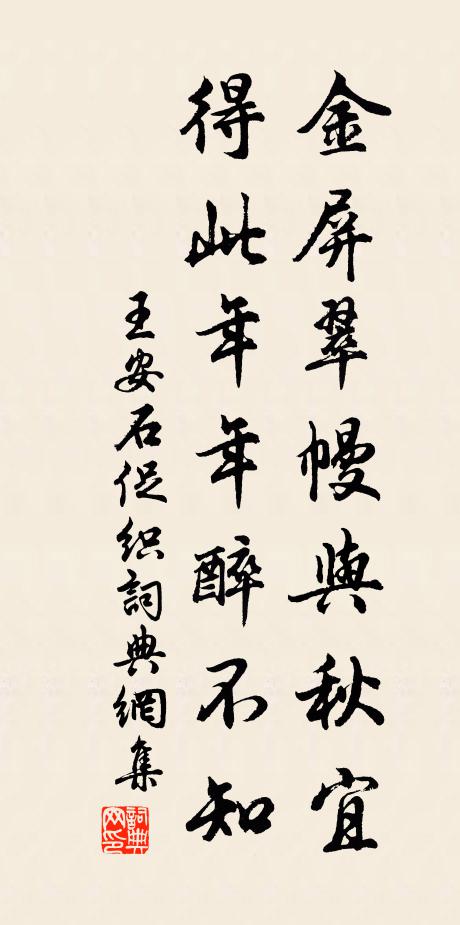 金屏翠幔與秋宜
得此年年醉不知
王安石促织詞典網集
詞典网印